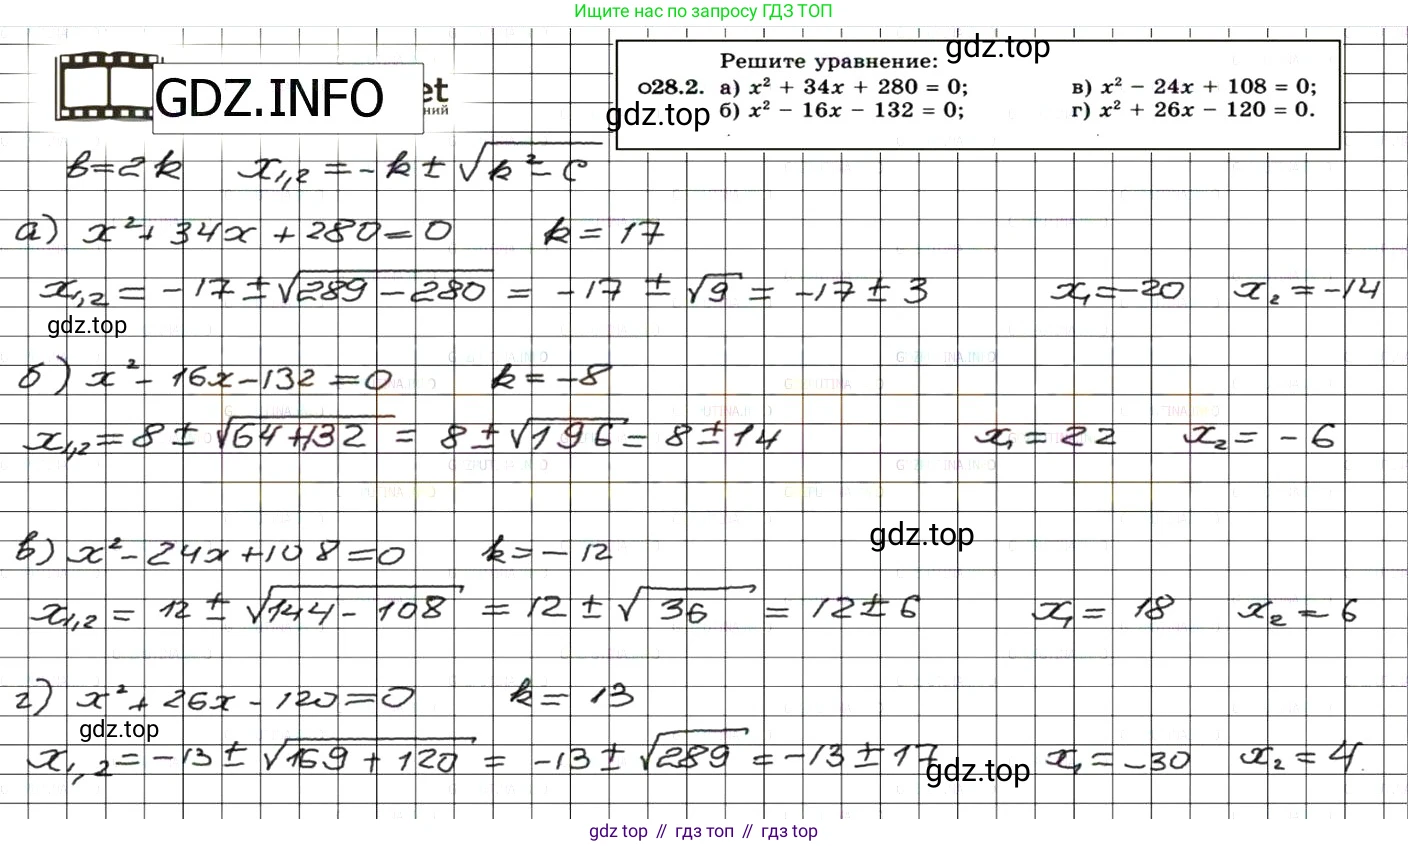 Ищите нас по запросу ГДЗ ТОП
GDZ.INFO
et
ний
gdz.top
Решите уравнение:
О28.2. а) x² + 34x + 280 = 0; в) x² − 24x + 108 = 0;
gdz.top
б) x² − 16x − 132 = 0; г) x² + 26x − 120 = 0.
b=2k x₁,₂ = -k ± √(k² - c)
а) x² + 34x + 280 = 0 k = 17
x₁,₂ = -17 ± √(289 - 280) = -17 ± √9 = -17 ± 3 x₁ = -20 x₂ = -14
gdz.top
б) x² - 16x - 132 = 0 k = -8
x₁,₂ = 8 ± √(64+132) = 8 ± √196 = 8 ± 14 x₁ = 22 x₂ = -6
gdz.top
в) x² - 24x + 108 = 0 k = -12
x₁,₂ = 12 ± √(144 - 108) = 12 ± √36 = 12 ± 6 x₁ = 18 x₂ = 6
г) x² + 26x - 120 = 0 k = 13
gdz.top
x₁,₂ = -13 ± √(169 + 120) = -13 ± √289 = -13 ± 17 x₁ = -30 x₂ = 4
gdz.top
gdz top // гдз топ // гдз top